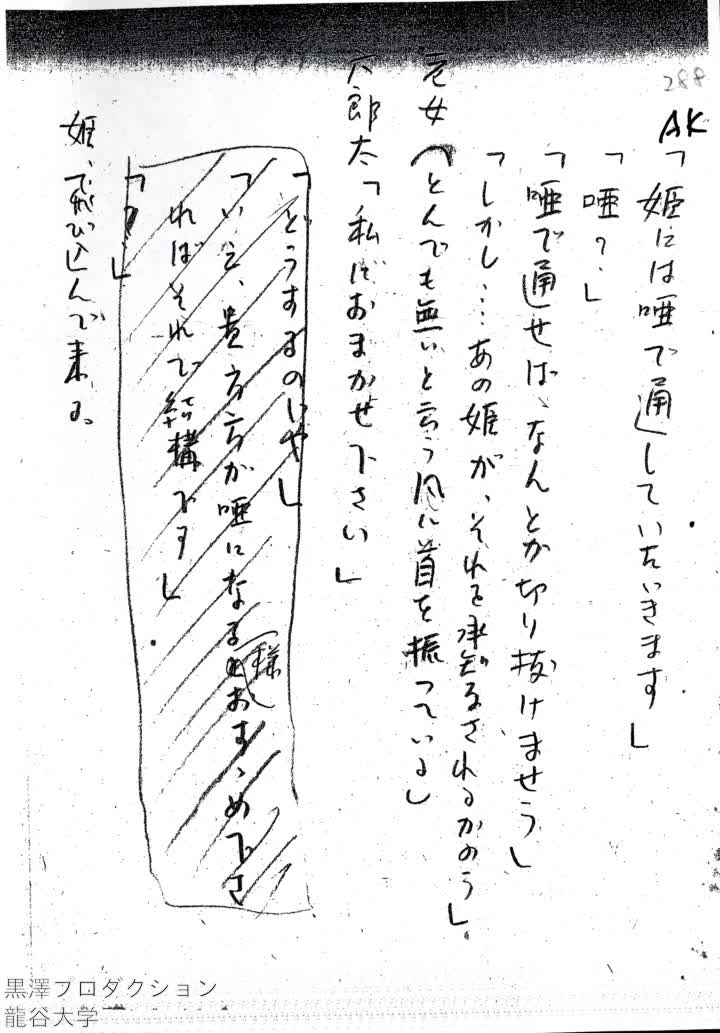 288
AK
「姫には唖で通していたゞきます」
「唖?」
「唖で通せば、なんとか切り抜けませう」
「しかし…あの姫が、それを承知なさるかのう」
老女(とんでも無いと言う風に首を振っている)
六郎太「私におまかせ下さい」
「どうするのじや」
「いえ、貴方方が唖になる様おすゝめ下さ
ればそれで結構です」
「?」
姫、飛び込んで来る。
黒澤プロダクション
龍谷大学